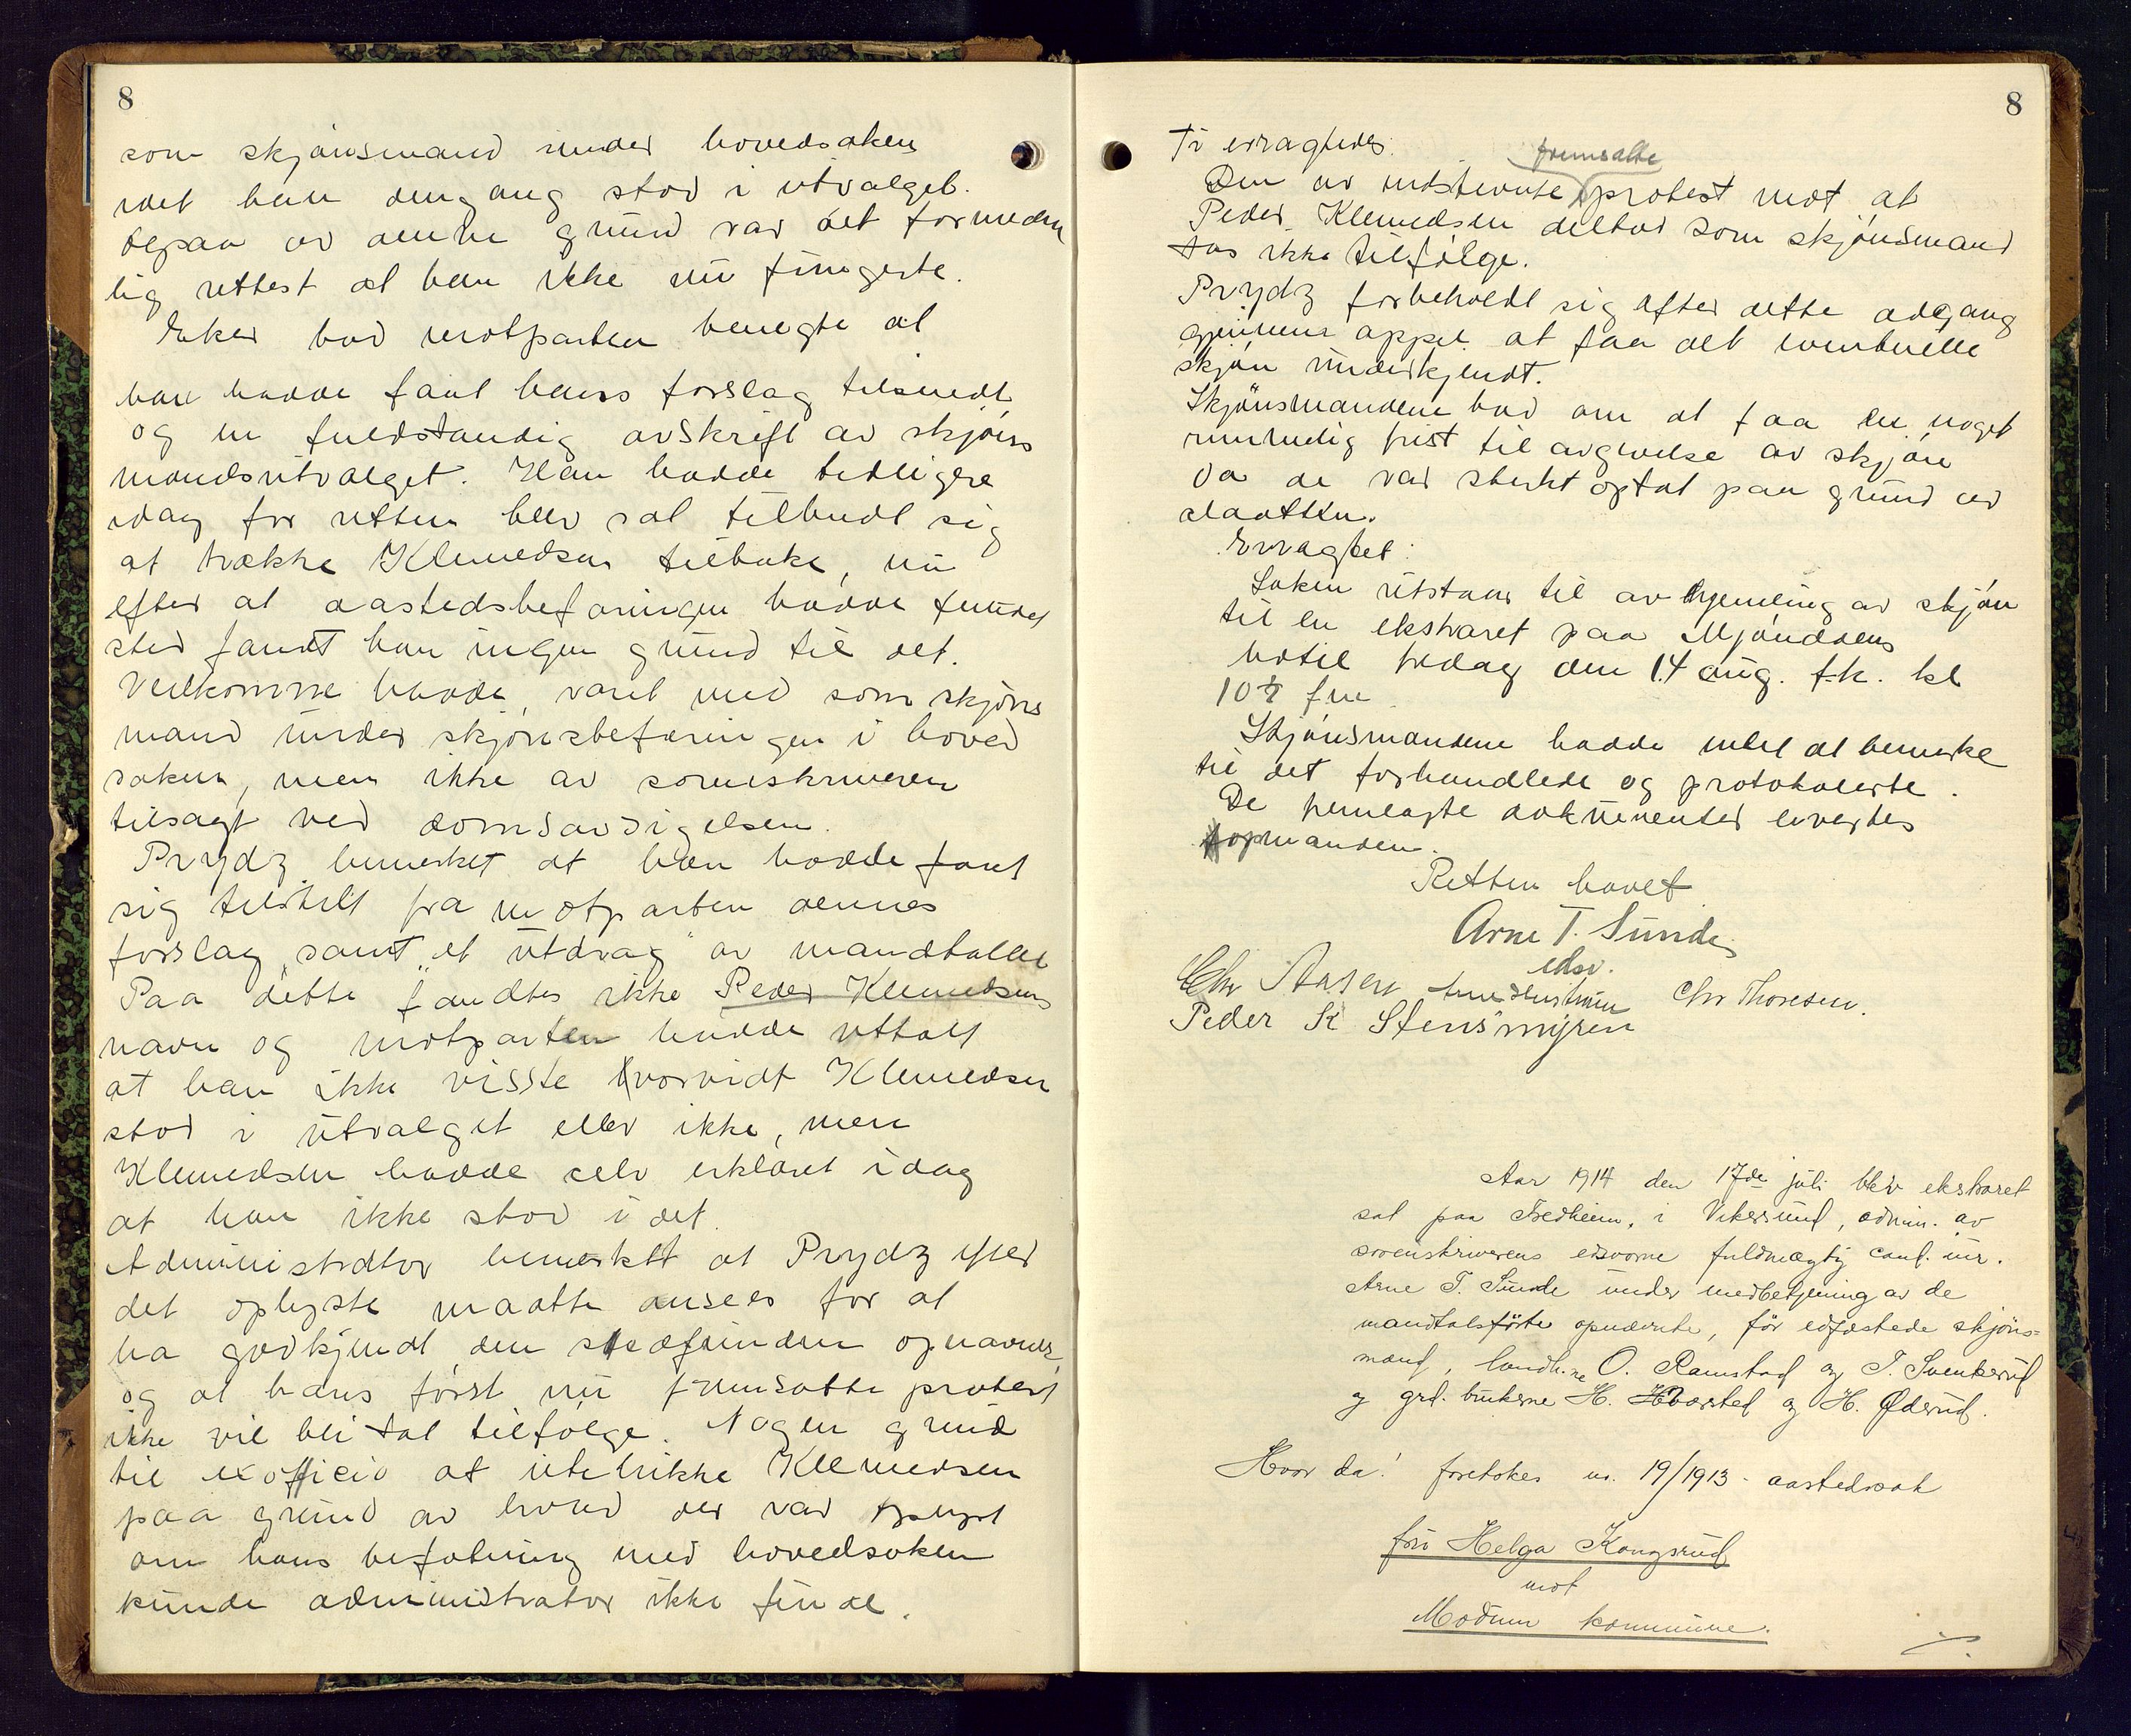 8
som skjønsmand under hovedsaken
idet han dengang stod i utvalget.
ogsaa av denne grund var det formeden
lig rettest at han ikke nu fungerte.
Eker bad motparten benegte at
han hadde faat hans forslag tilsendt
og en fuldstændig avskrift av skjøns
mandsutvalget. Han hadde tidligere
idag før retten blev sat tilbudt sig
at trække Klemedsen tilbake, nu
efter at aastedsbefaringen hadde fundet
sted fandt han ingen grund til det.
Vedkomme hadde, været med som skjøns
mand under skjønsbefaringen i hoved
saken, men ikke av sorenskriveren
tilsagt ved domsavsigelsen.
Prydz bemerket at han hadde faat
sig tilstilt fra motparten dennes
forslag samt "et utdrag" av mandtallet
Paa dette fandtes ikke Peder Klemedsens
navn og motparten hadde uttalt
at han ikke visste hvorvidt Klemedsen
stod i utvalget eller ikke, men
Klemedsen hadde selv erklæret idag
at han ikke stod i det.
Administrator bemerket at Prydz efter
det oplyste maatte ansees for at
ha godkjendt den stedfundne opnævnelse,
og at hans først nu fremsatte protest
ikke vil bli tat tilfølge. Nogen grund
til ex officio at utelukke Klemedsen
paa grund av hvad der var oplyst
om hans befatning med hovedsaken
kunde administrator ikke finde.
8
Ti eragtedes:
Den av indstevnte fremsatte protest mot at
Peder Klemedsen deltar som skjønsmand
tas ikke tilfølge.
Prydz forbeholdt sig efter dette adgang
gjennem appel at faa det eventuelle
skjøn underkjendt.
Skjønsmændene bad om at faa en noget
rummelig frist til avgivelse av skjøn
da de var sterkt optat paa grund av
slaatten.
Eragtet:
Saken utstaar til avhjemling av skjøn
til en ekstraret paa Mjøndalens
hotel fredag den 14 aug. f.k. kl
10½ fm.
Skjønsmændene hadde intet at bemerke
til det forhandlede og protokolerte.
De fremlagte dokumenter leverdes
opmanden.
Retten hævet
Arne T. Sunde
edsv.
Chr Aasen Chr Thoresen.
Peder K Stensmyren
Aar 1914 den 17de juli blev ekstraret
sat paa Fredheim, i Vikersund, admin. av
sorenskriverens edsvorne fuldmægtig cand. jur.
Arne T. Sunde under medbetjening av de
mandtalsførte opnævnte, før edfæstede skjøns=
mænd, landh.ne O. Ramstad og T. Svenkerud
og grd. brukerne H. Hvarstad og H. Øderud.
Hvor da! foretokes nr. 19/1913 - aastedssak
fru Helga Kongsrud
mot
Modum kommune.